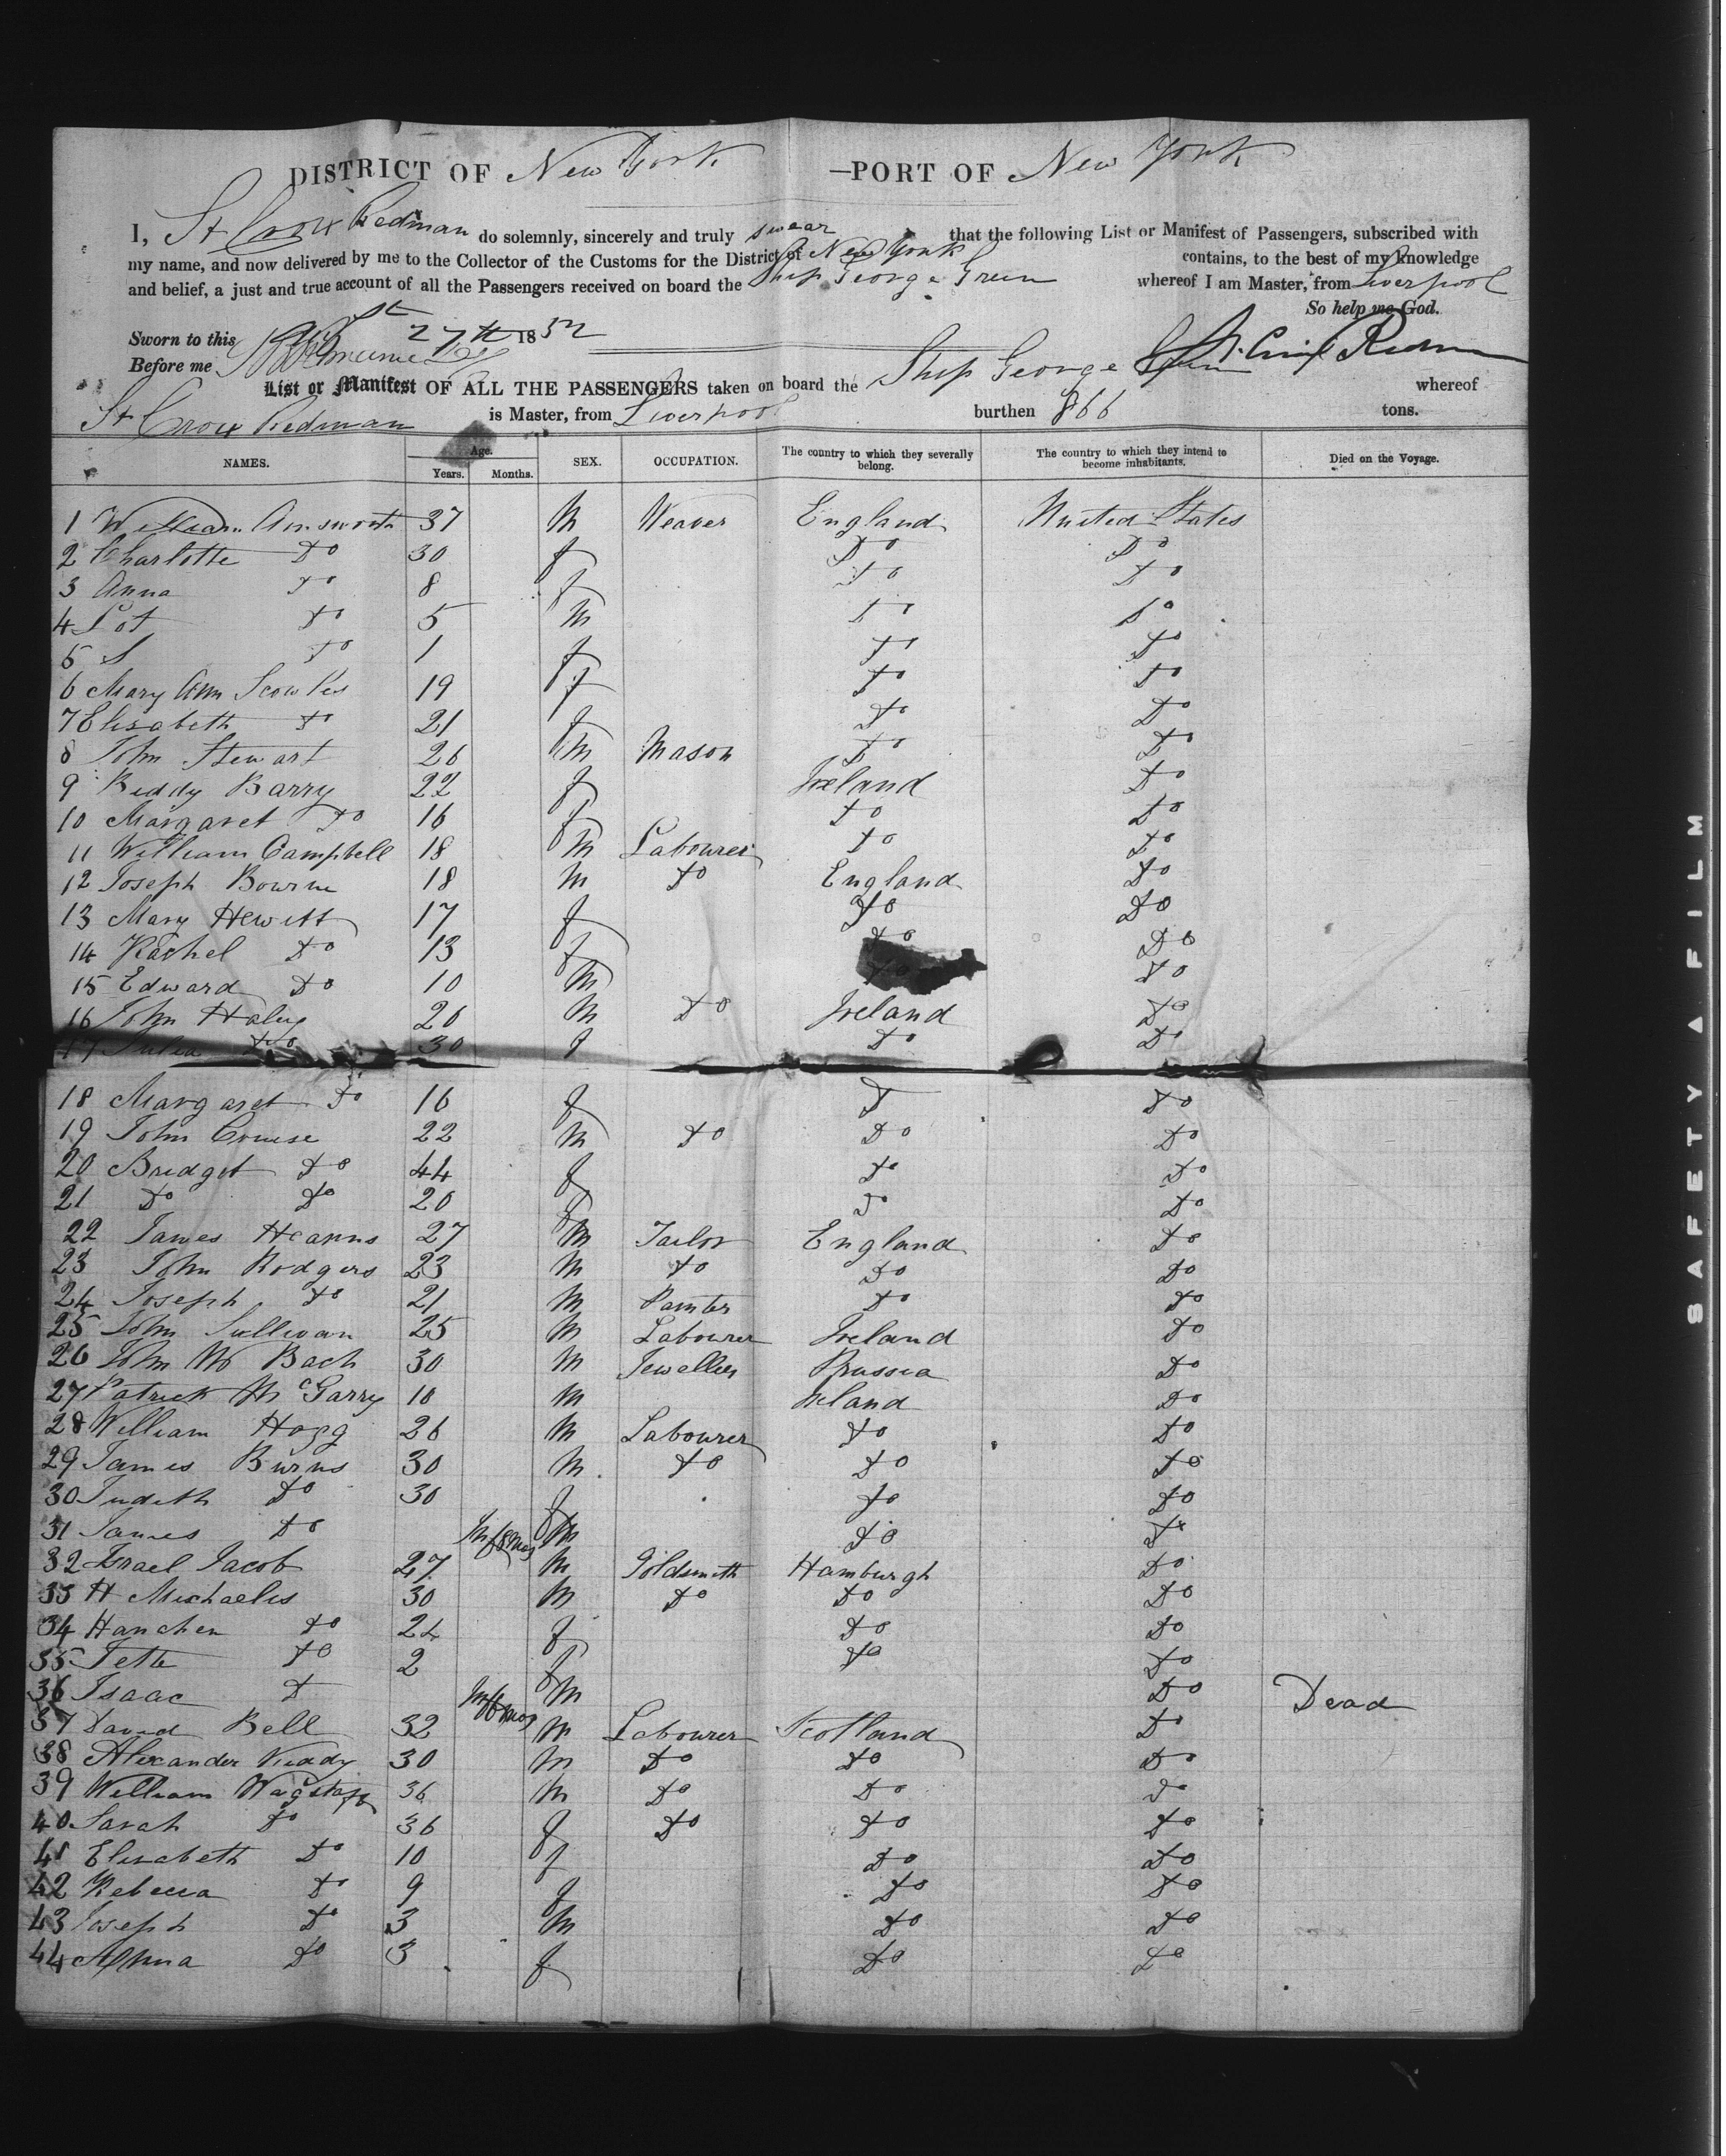 DISTRICT OF New York —PORT OF New York
I, St Croix Redman do solemnly, sincerely and truly swear that the following List or Manifest of Passengers, subscribed with
my name, and now delivered by me to the Collector of the Customs for the District of New York contains, to the best of my knowledge
and belief, a just and true account of all the Passengers received on board the Ship George Green whereof I am Master, from Liverpool
So help me God.
Sworn to this 27th 1852
Before me St. Croix Redman
List or Manifest OF ALL THE PASSENGERS taken on board the Ship George Green whereof
St Croix Redman is Master, from Liverpool burthen 866 tons.
NAMES. Age. Years. Months. SEX. OCCUPATION. The country to which they severally belong. The country to which they intend to become inhabitants. Died on the Voyage.
1 William Ainsworth 37 M Weaver England United States
2 Charlotte Do 30 f Do Do
3 Anna Do 8 f Do Do
4 Lot Do 5 M Do Do
5 S Do 1 f Do Do
6 Mary Ann 19 f Do Do
7 Elisabeth Do 21 f Do Do
8 John Stewart 26 M Mason Do Do
9 Biddy Barry 22 f Ireland Do
10 Margaret Do 16 f Do Do
11 William Campbell 18 M Labourer Do Do
12 Joseph Bourne 18 M Do England Do
13 Mary Hewitt 17 f Do Do
14 Rachel Do 13 f Do Do
15 Edward Do 10 M Do Do
16 John Haley 20 M Do Ireland Do
17 Julia Do 30 f Do Do
18 Margaret Do 16 f D Do
19 John Cruise 22 M Do Do Do
20 Bridget Do 44 f Do Do
21 Do Do 20 f Do Do
22 James Hearns 27 M Tailor England Do
23 John Rodgers 23 M Do Do Do
24 Joseph Do 21 M Painter Do Do
25 John Sullivan 25 M Labourer Ireland Do
26 John W Bach 30 M Jeweller Prussia Do
27 Patrick McGarry 10 M Ireland Do
28 William Hogg 26 M Labourer Do Do
29 James Burns 30 M Do Do Do
30 Judith Do 30 f Do Do
31 James Do Inf 8 mos M Do Do
32 Israel Jacob 27 M Goldsmith Hamburgh Do
33 H Michaelis 30 M Do Do Do
34 Hanchen Do 24 f Do Do
35 Jette Do 2 f Do Do
36 Isaac D Inf mos M Do Dead
37 David Bell 32 M Labourer Scotland Do
38 Alexander Keddy 30 M Do Do Do
39 William Wagstaff 36 M Do Do Do
40 Sarah Do 36 f Do Do Do
41 Elisabeth Do 10 f Do Do
42 Rebecca Do 9 f Do Do
43 Joseph Do 3 M Do Do
44 Anna Do 3 f Do Do
SAFETY A FILM